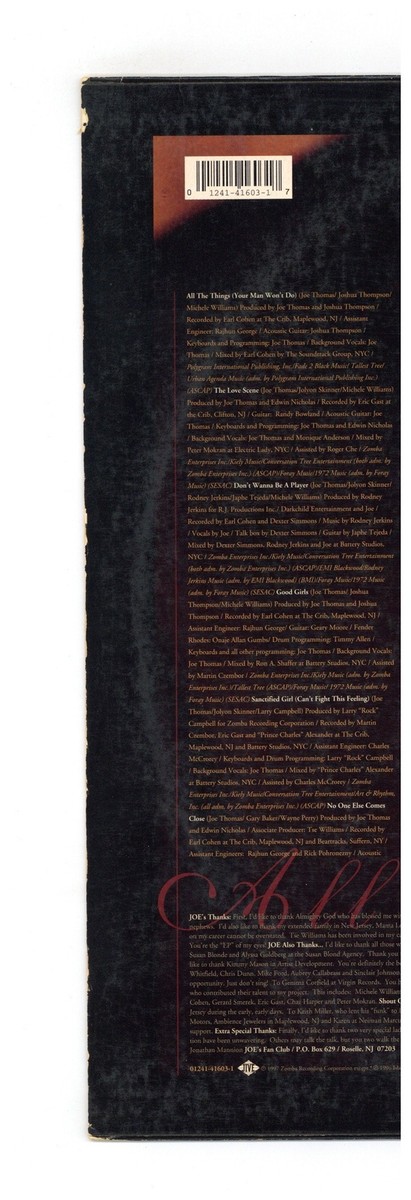 0 1241-41603-1 7
All The Things (Your Man Won't Do) (Joe Thomas/ Joshua Thompson/
Michele Williams) Produced by Joe Thomas and Joshua Thompson /
Recorded by Earl Cohen at The Crib, Maplewood, NJ / Assistant
Engineer: Rajhun George / Acoustic Guitar: Joshua Thompson /
Keyboards and Programming: Joe Thomas / Background Vocals: Joe
Thomas / Mixed by Earl Cohen by The Soundstack Group, NYC /
Polygram International Publishing, Inc./Fade 2 Black Music/ Tallest Tree/
Urban Agenda Music (adm. by Polygram International Publishing Inc.)
(ASCAP) The Love Scene (Joe Thomas/Jolyon Skinner/Michele Williams)
Produced by Joe Thomas and Edwin Nicholas / Recorded by Eric Gast at
the Crib, Clifton, NJ / Guitar: Randy Bowland / Acoustic Guitar: Joe
Thomas / Keyboards and Programming: Joe Thomas and Edwin Nicholas
/ Background Vocals: Joe Thomas and Monique Anderson / Mixed by
Peter Mokran at Electric Lady, NYC / Assisted by Roger Che / Zomba
Enterprises Inc./Kiely Music/Conversation Tree Entertainment (both adm. by
Zomba Enterprises Inc.) (ASCAP)/Foray Music/1972 Music (adm. by Foray
Music) (SESAC) Don't Wanna Be A Player (Joe Thomas/Jolyon Skinner/
Rodney Jerkins/Japhe Tejeda/Michele Williams) Produced by Rodney
Jerkins for R.J. Productions Inc./ Darkchild Entertainment and Joe /
Recorded by Earl Cohen and Dexter Simmons / Music by Rodney Jerkins
/ Vocals by Joe / Talk box by Dexter Simmons / Guitar by Japhe Tejeda /
Mixed by Dexter Simmons, Rodney Jerkins and Joe at Battery Studios,
NYC / Zomba Enterprises Inc./Kiely Music/Conversation Tree Entertainment
(both adm. by Zomba Enterprises Inc.) (ASCAP)/EMI Blackwood/Rodney
Jerkins Music (adm. by EMI Blackwood) (BMI)/Foray Music/1972 Music
(adm. by Foray Music) (SESAC) Good Girls (Joe Thomas/ Joshua
Thompson/Michele Williams) Produced by Joe Thomas and Joshua
Thompson / Recorded by Earl Cohen at The Crib, Maplewood, NJ /
Assistant Engineer: Rajhun George/ Guitar: Geary Moore / Fender
Rhodes: Onaje Allan Gumbs/ Drum Programming: Timmy Allen /
Keyboards and all other programming: Joe Thomas / Background Vocals:
Joe Thomas / Mixed by Ron A. Shaffer at Battery Studios, NYC / Assisted
by Martin Czembor / Zomba Enterprises Inc./Kiely Music (adm. by Zomba
Enterprises Inc.)/Tallest Tree (ASCAP)/Foray Music/ 1972 Music (adm. by
Foray Music) (SESAC) Sanctified Girl (Can't Fight This Feeling) (Joe
Thomas/Jolyon Skinner/Larry Campbell) Produced by Larry "Rock"
Campbell for Zomba Recording Corporation / Recorded by Martin
Czembor, Eric Gast and "Prince Charles" Alexander at The Crib,
Maplewood, NJ and Battery Studios, NYC / Assistant Engineer: Charles
McCrorey / Keyboards and Drum Programming: Larry "Rock" Campbell
/ Background Vocals: Joe Thomas / Mixed by "Prince Charles" Alexander
at Battery Studios, NYC / Assisted by Charles McCrorey / Zomba
Enterprises Inc./Kiely Music/Conversation Tree Entertainment/Art & Rhythm,
Inc. (all adm. by Zomba Enterprises Inc.) (ASCAP) No One Else Comes
Close (Joe Thomas/ Gary Baker/Wayne Perry) Produced by Joe Thomas
and Edwin Nicholas / Associate Producer: Tse Williams / Recorded by
Earl Cohen at The Crib, Maplewood, NJ and Beartracks, Suffern, NY /
Assistant Engineers: Rajhun George and Rick Pohronezny / Acoustic
All
JOE's Thanks: First, I'd like to thank Almighty God who has blessed me wi
nephews. I'd also like to thank my extended family in New Jersey, Manta L
on my career cannot be overstated. Tse Williams has been involved in my ca
You're the "13" of my eyes! JOE Also Thanks... I'd like to thank all those w
Susan Blonde and Alyssa Guldberg at the Susan Blond Agency. Thank you
like to thank Kimmy Mason in Artist Development. You is definitely the be
Whitfield, Chris Dunn, Mike Ford, Aubrey Callabeau and Sinclair Johnson
opportunity. Just don't sing! To Gemma Corfield at Virgin Records. You h
who contributed their talent to my project. This includes: Michele William
Cohen, Gerard Smerek, Eric Gast, Chaz Harper and Peter Mokran. Shout O
Jersey during the early, early days. To Keith Miller, who lent his "funk" to
Motors, Ambience Jewelers in Maplewood, NJ and Karen at Neiman Marcu
support. Extra Special Thanks: Finally, I'd like to thank two very special lad
tion have been unwavering. Others may talk the talk, but you two walk the
Jonathan Mannion JOE's Fan Club / P.O. Box 629 / Roselle, NJ 07203
01241-41603-1 JIVE © 1997 Zomba Recording Corporation